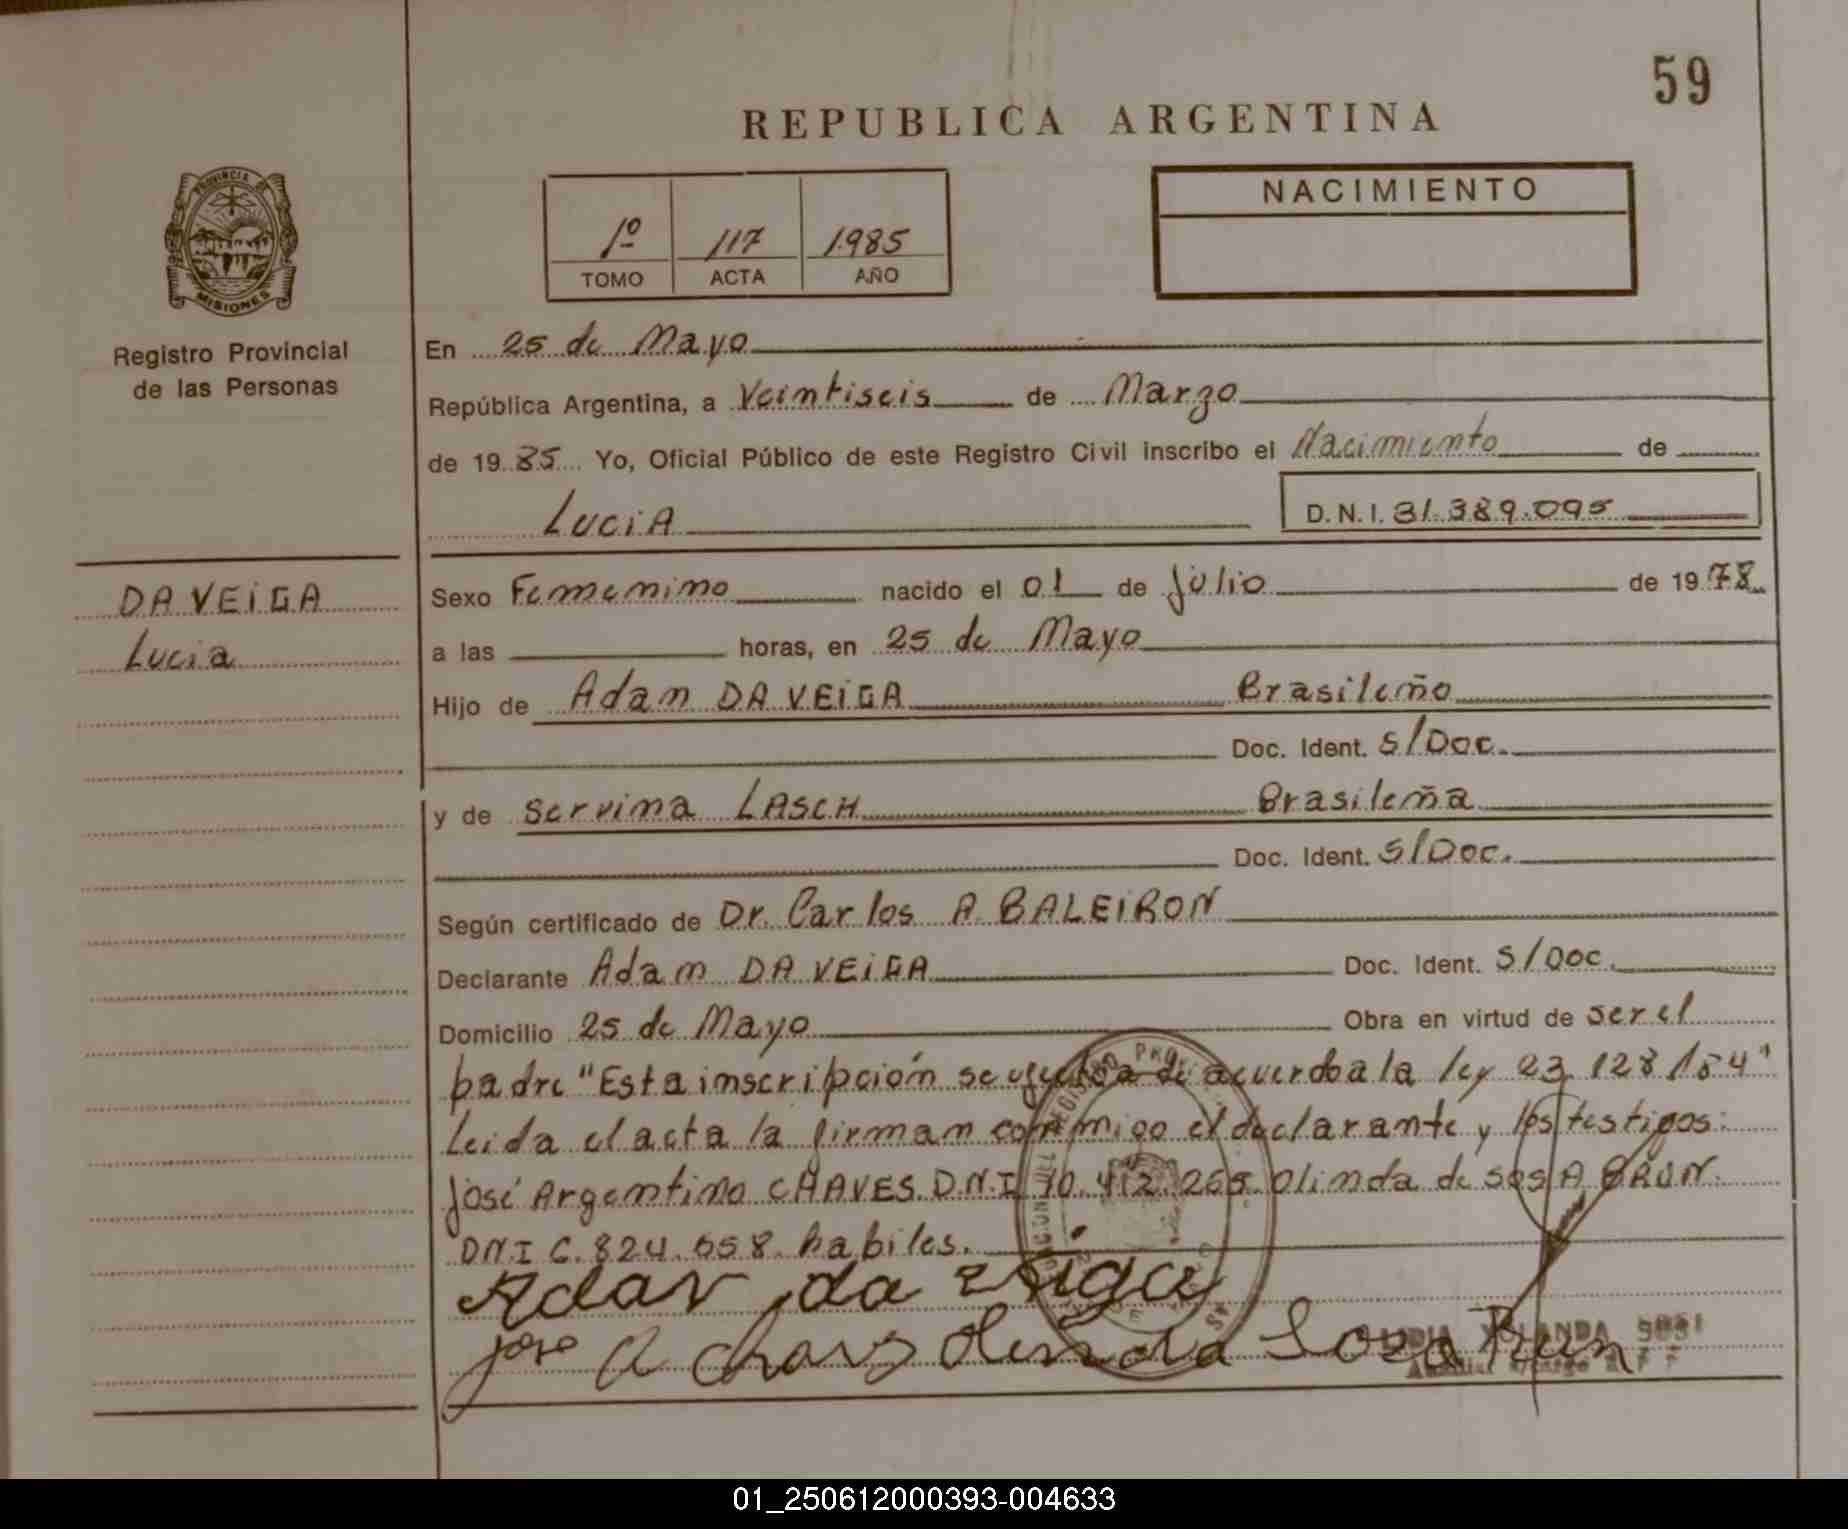 59
REPUBLICA ARGENTINA
PROVINCIA DE
MISIONES
Registro Provincial
de las Personas
1º 117 1985
TOMO ACTA AÑO
NACIMIENTO
En 25 de Mayo
República Argentina, a Veintiseis de Marzo
de 1985 Yo, Oficial Público de este Registro Civil inscribo el Nacimiento de
LuciA D.N.I. 31.389.095
DA VEiGA
Lucia
Sexo Femenino nacido el 01 de julio de 1978
a las horas, en 25 de Mayo
Hijo de Adam DA VEiGA Brasileño
Doc. Ident. S/Doc.
y de Servina LASCH Brasileña
Doc. Ident. S/Doc.
Según certificado de Dr. Carlos A. BALEiRON
Declarante Adam DA VEiGA Doc. Ident. S/Doc.
Domicilio 25 de Mayo Obra en virtud de ser el
padre "Esta inscripción se efectúa de acuerdo a la ley 23.128/84"
Leida el acta la firman conmigo el declarante y los testigos:
José Argentino CHAVES. D.N.I. 10.412.265. Olinda de SOSA BRUN.
DNI 6.824.658. habiles.
Adan da veiga
jose A chaves Olinda Sosa Brun
LIDIA YOLANDA
01_250612000393-004633